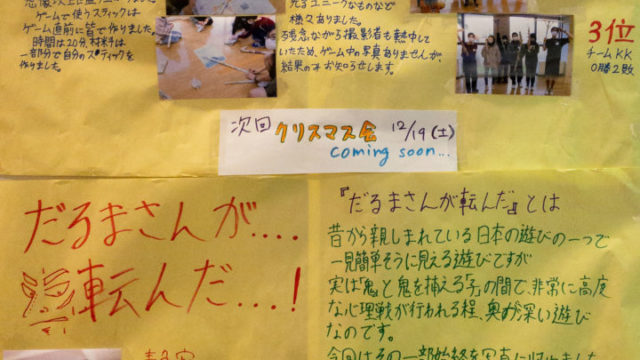 ゲームで使うスティックは
ゲーム直前に皆で作りました。
時間は20分、材料は
一部分で自分のスティックを
作りました。
出るユニークなものなど
様々ありました。
残念ながら撮影者も熱中して
いたため、ゲーム中の写真ありませんが、
結果のみお知らせします。
3位
チームKK
0勝2敗
次回 クリスマス会 12/19(土)
coming soon...
だるまさんが....
転んだ...!
『だるまさんが転んだ』とは
昔から親しまれている日本の遊びの一つで
一見簡単そうに見える遊びですが
実は「鬼と鬼を捕える「子」の間で、非常に高度
な心理戦が行われる程、奥が深い遊び
なのです。